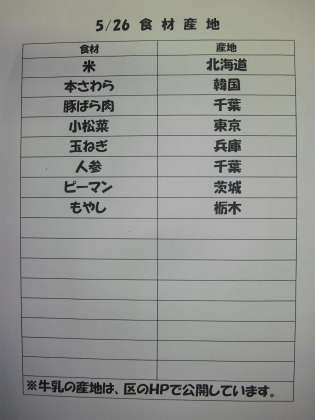 5/26 食材産地
食材 産地
米 北海道
本さわら 韓国
豚ばら肉 千葉
小松菜 東京
玉ねぎ 兵庫
人参 千葉
ピーマン 茨城
もやし 栃木
※牛乳の産地は、区のHPで公開しています。